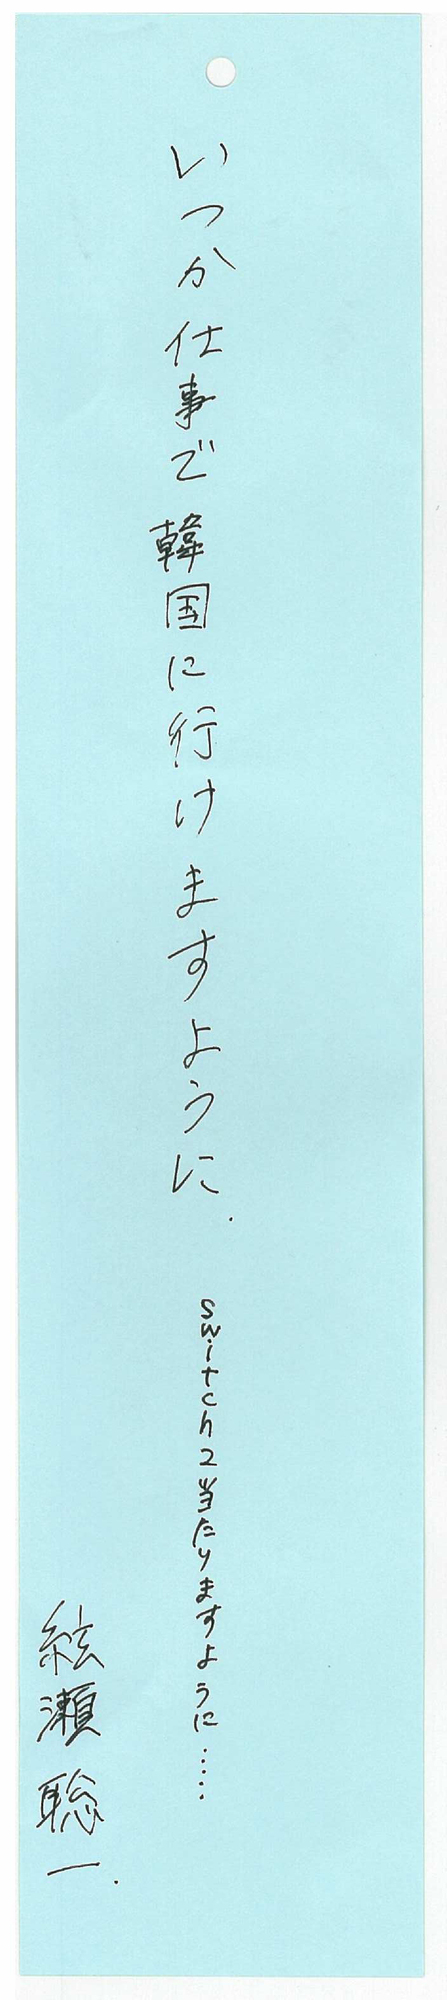 いつか仕事で韓国に行けますように.
switch2当たりますように……
絃瀬聡一.